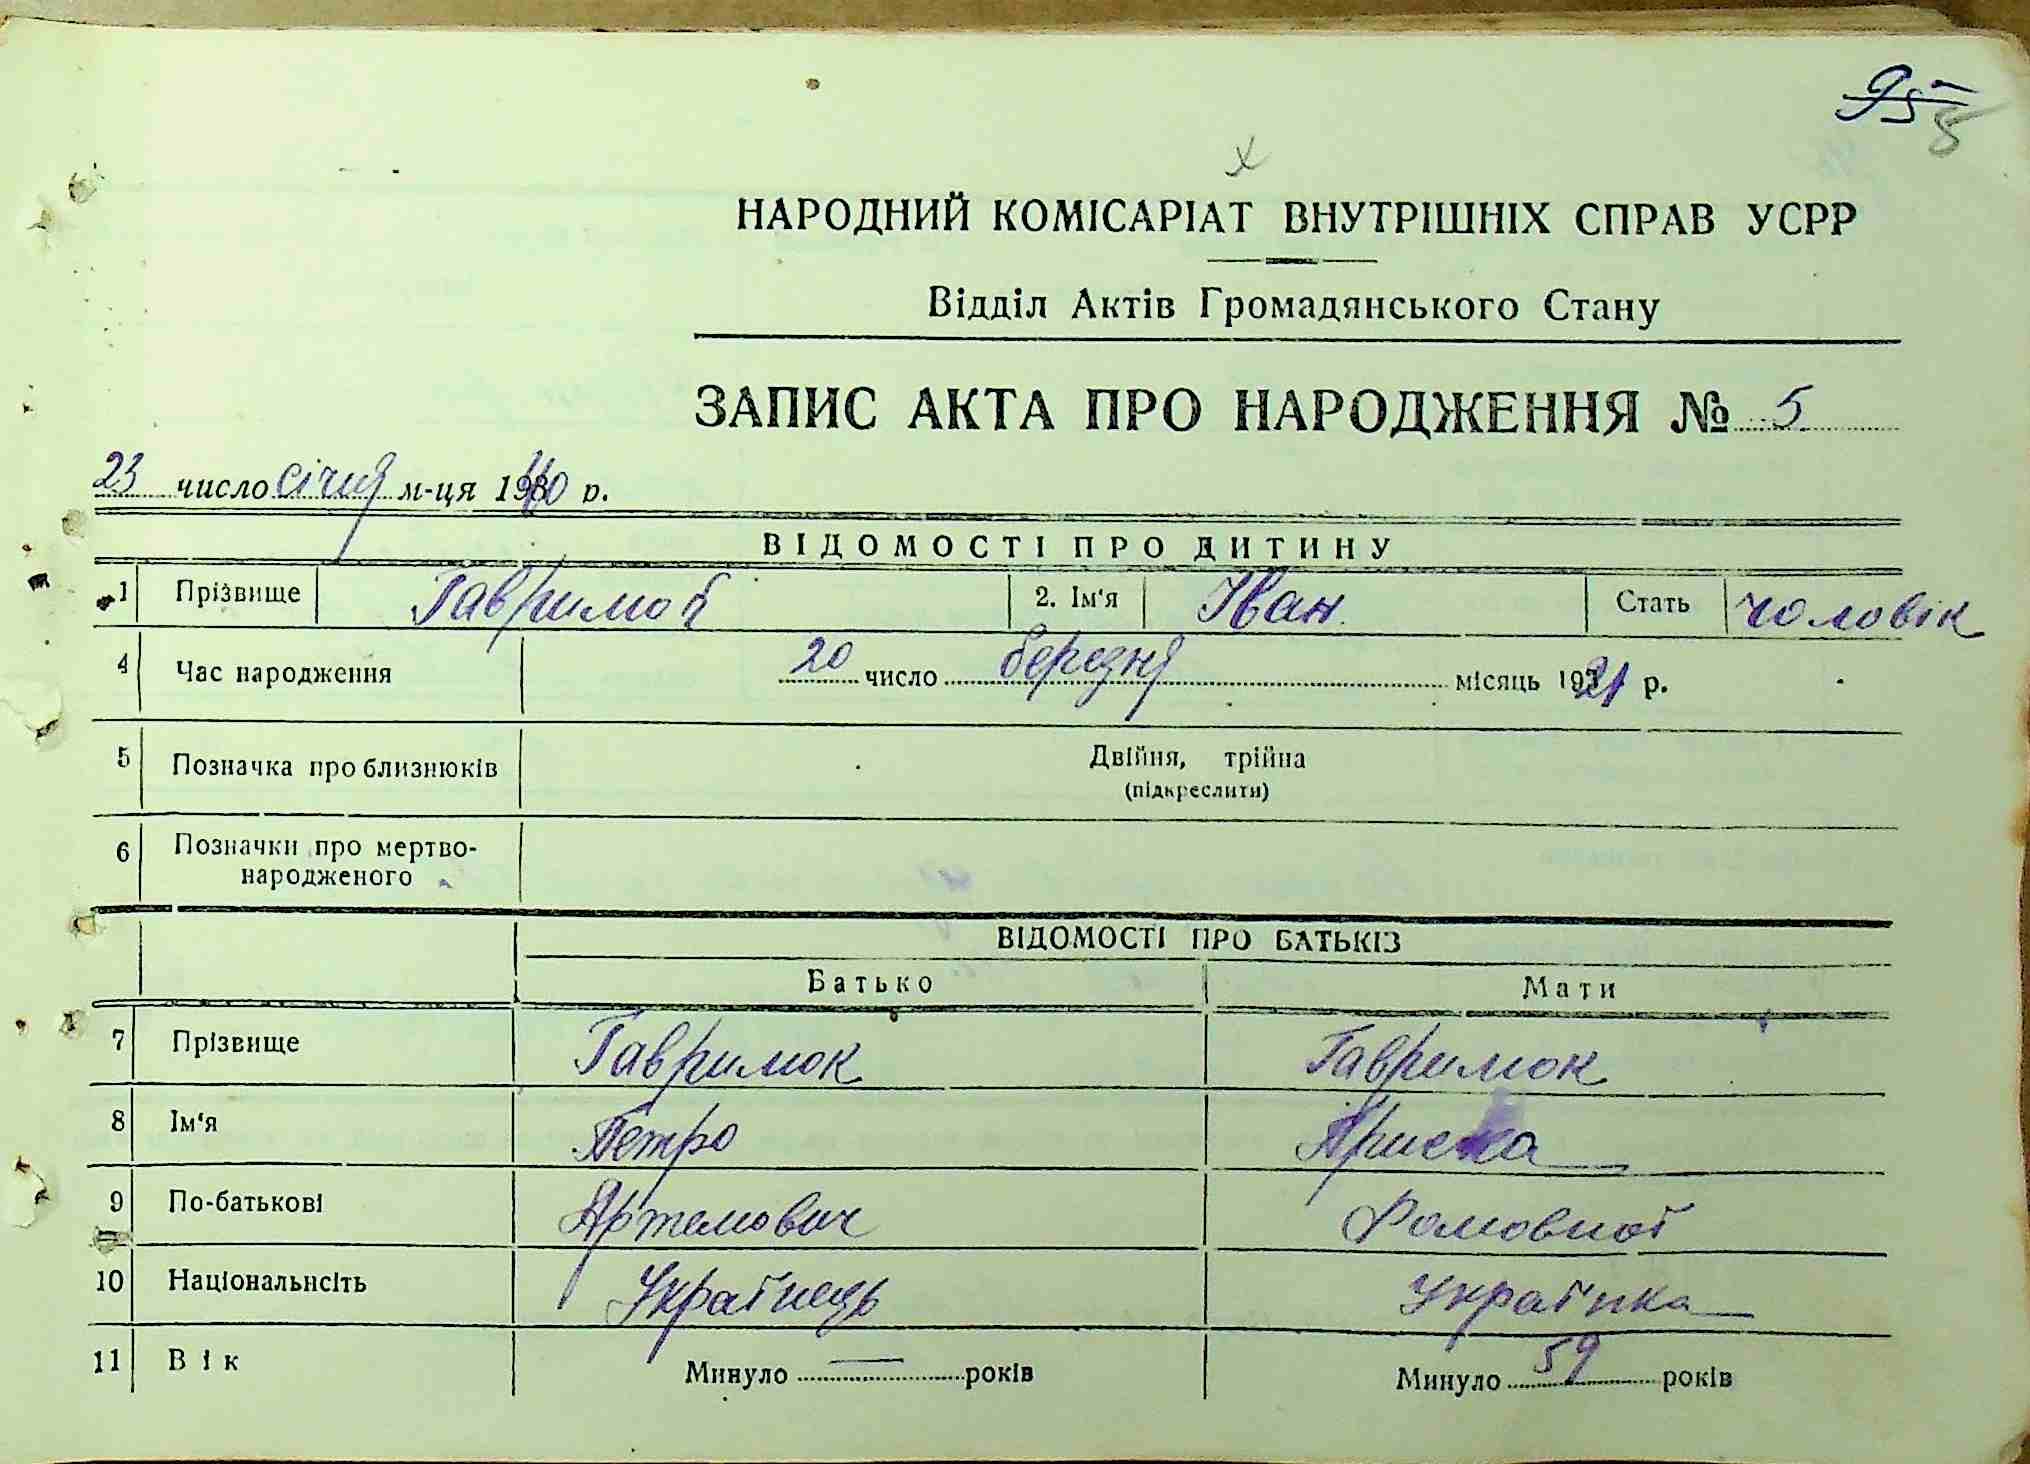 95 8
х
НАРОДНИЙ КОМІСАРІАТ ВНУТРІШНІХ СПРАВ УСРР
Відділ Актів Громадянського Стану
ЗАПИС АКТА ПРО НАРОДЖЕННЯ № 5
23 число січня м-ця 1940 р.
ВІДОМОСТІ ПРО ДИТИНУ
1 Прізвище 2. Ім'я Іван Стать чоловік
4 Час народження 20 число березня місяць 1921 р.
5 Позначка про близнюків Двійня, трійна
(підкреслити)
6 Позначки про мертво-
народженого
ВІДОМОСТІ ПРО БАТЬКІЗ
Батько Мати
7 Прізвище Гавримок Гавримок
8 Ім'я Петро
9 По-батькові Артемович
10 Національнсіть Українець Українка
11 Вік Минуло — років Минуло 59 років